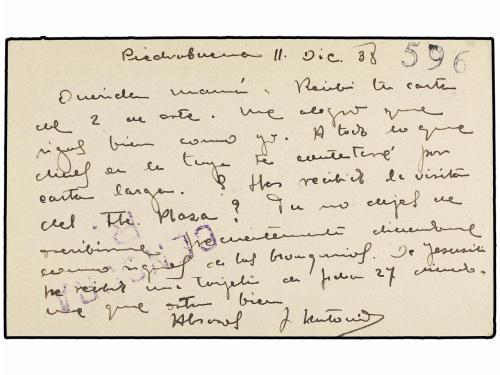 Piedrabuena 11. Dic. 38 596
Querida mamá: Recibí tu carta
del 2 de este. Me alegro que
sigas bien como yo. A todo lo que
dices en la tuya te contestaré por
carta larga. ¿Has recibido la visita
del Plaza? Tu no dejes de
escribirme frecuentemente diciendome
como sigues de los bronquios. De Jesusito
he recibido una tarjeta de fecha 27 diciendo-
me que esta bien
CENSURA
Abrazos J. Antonio